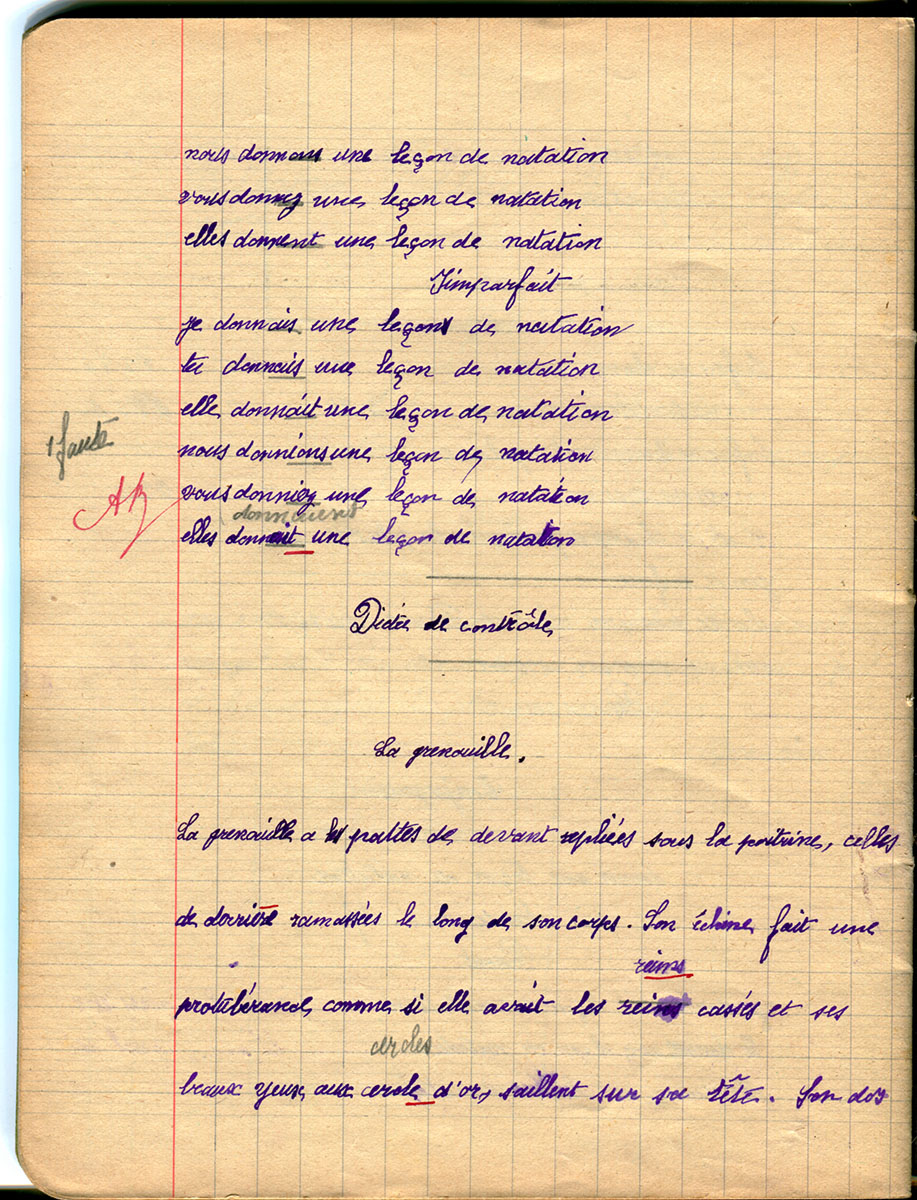 nous donnons une leçon de natation
vous donnez une leçon de natation
elles donnent une leçon de natation
Imparfait
je donnais une leçon de natation
tu donnais une leçon de natation
elle donnait une leçon de natation
1 faute
nous donnions une leçon de natation
vous donniez une leçon de natation
donnaient
elles donnait une leçon de natation
Dictée de contrôle
La grenouille.
La grenouille a les pattes de devant repliées sous la poitrine, celles
de derrière ramassées le long de son corps. Son échine fait une
reins
protubérance comme si elle avait les reins cassés et ses
cercles
beaux yeux aux cercle d'or, saillent sur sa tête. Son dos